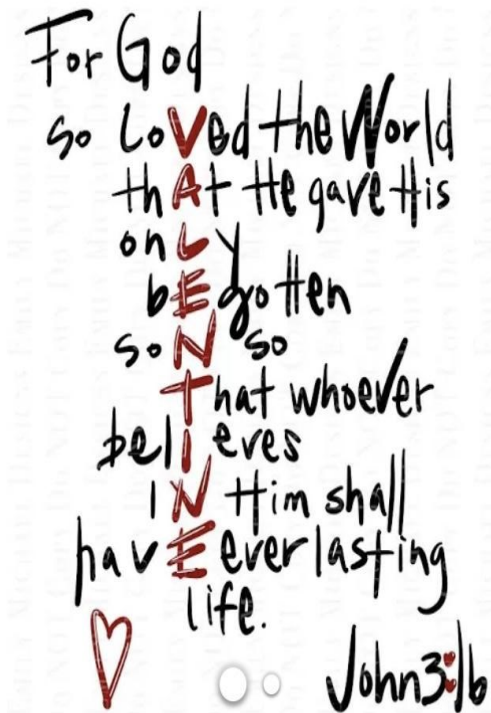 For God
so LoVed the World
thAt He gave His
onLy
bEgotten
soN so
That whoever
belIeves
IN Him shall
havE everlasting
life.
John3:16